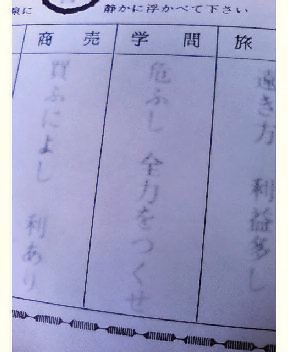 静かに浮かべて下さい
旅
遠き方 利益多し
学問
危ふし 全力をつくせ
商売
買ふによし 利あり